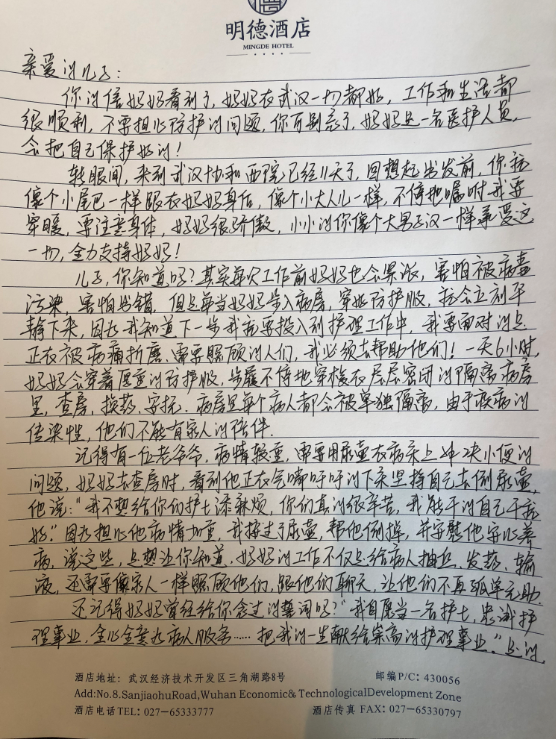 明德酒店
MINGDE HOTEL
亲爱的儿子:
你的信妈妈看到了,妈妈在武汉一切都好,工作和生活都
很顺利,不要担心防护的问题,你可别忘了,妈妈是一名医护人员,
会把自己保护好的!
转眼间,来到武汉协和西院已经11天了,回想起出发前,你就
像个小尾巴一样跟在妈妈身后,像个小大人儿一样,不停地嘱咐我要
穿暖,要注意身体,妈妈很骄傲,小小的你像个大男子汉一样承受这
一切,全力支持妈妈!
儿子,你知道吗?其实每次工作前妈妈也会紧张,害怕被病毒
污染,害怕出错,但是每当妈妈步入病房,穿好防护服,就会立刻平
静下来,因为我知道下一步我就要投入到护理工作中,我要面对的是
正在被病痛折磨、需要照顾的人们,我必须去帮助他们!一天6小时,
妈妈会穿着厚重的防护服,步履不停地穿梭在层层密闭的隔离病房
里,查房,换药,安抚.病房里每个病人都会被单独隔离,由于疾病的
传染性,他们不能有家人的陪伴.
记得有一位老爷爷,病情较重,需要用尿壶在病床上解决小便的
问题,妈妈去查房时,看到他正在气喘吁吁的下床坚持自己去倒尿壶,
他说:"我不想给你们护士添麻烦,你们真的很辛苦,我能干的自己干就
好."因为担心他病情加重,我接过尿壶,帮他倒掉,并安慰他安心养
病.说这些,是想让你知道,妈妈的工作不仅是给病人抽血,发药,输
液,还需要像家人一样照顾他们,跟他们聊天,让他们不再孤单无助.
还记得妈妈曾经给你念过的誓词吗?"我自愿当一名护士,忠诚护
理事业,全心全意为病人服务……把我的一生献给崇高的护理事业."是的,
酒店地址: 武汉经济技术开发区三角湖路8号 邮编P/C: 430056
Add:No.8.SanjiaohuRoad,Wuhan Economic& TechnologicalDevelopment Zone
酒店电话TEL: 027-65333777 酒店传真 FAX: 027-65330797